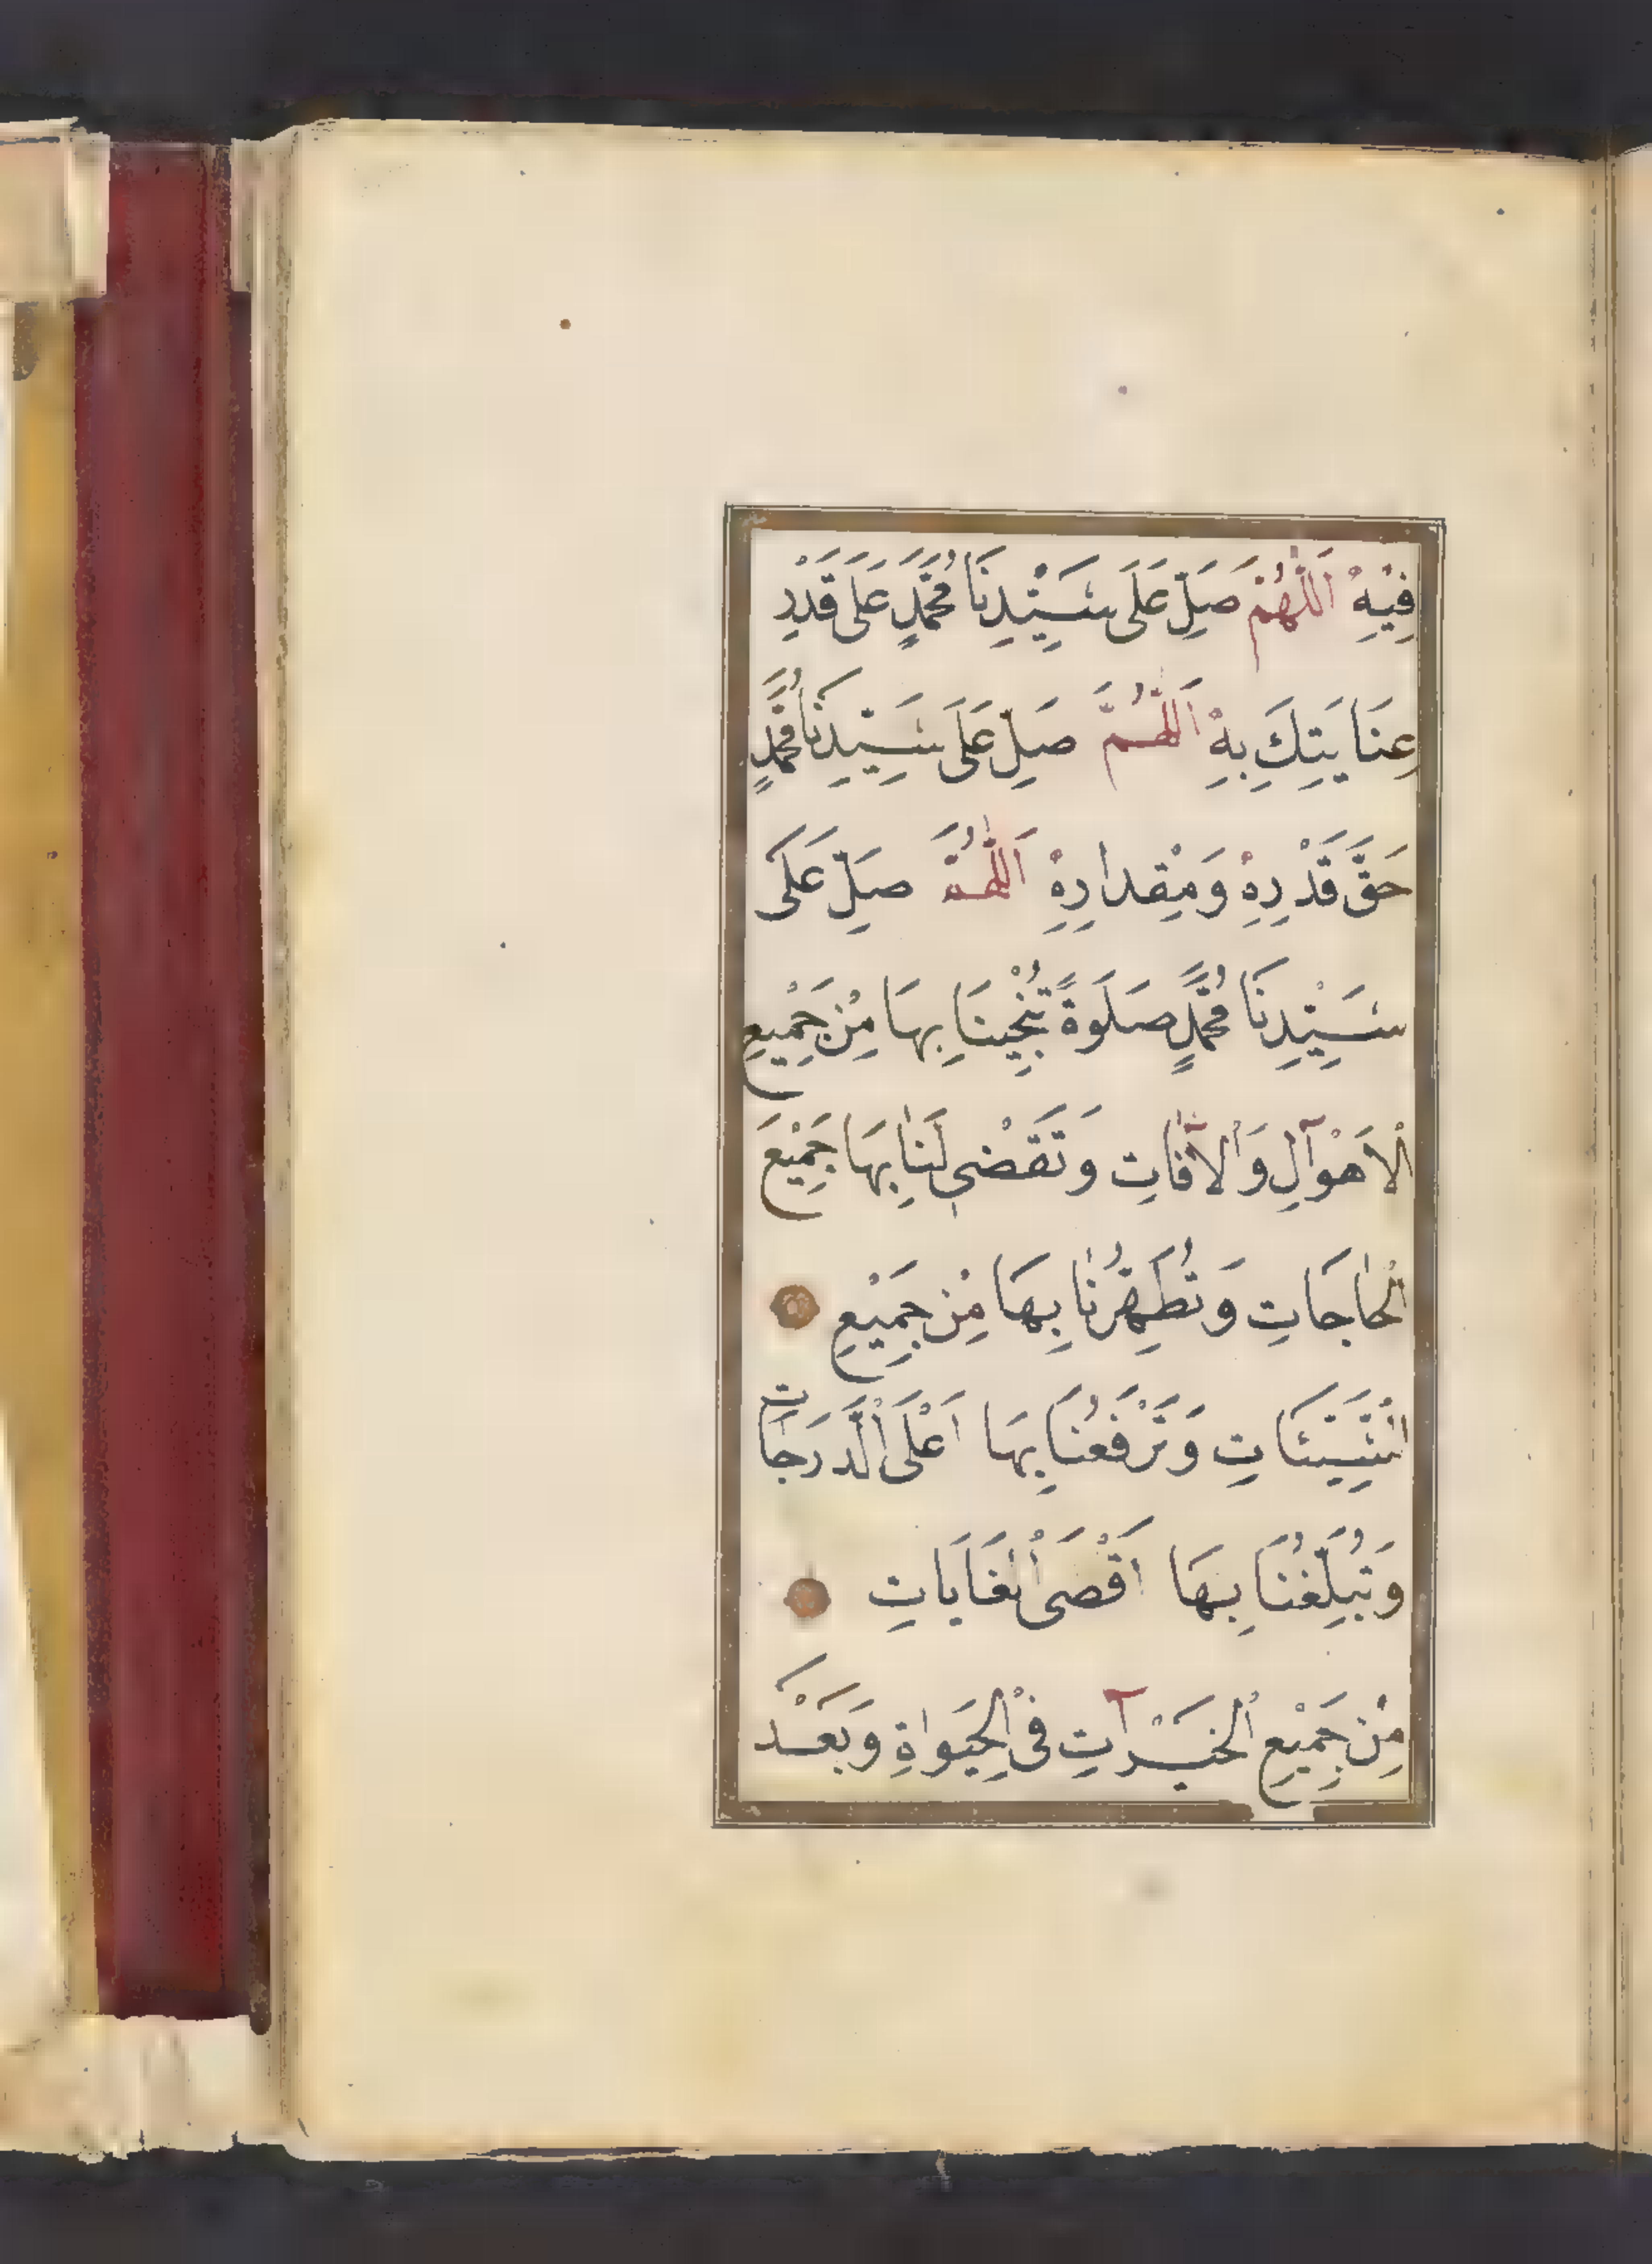 فِيْهِ اَللّٰهُمَّ صَلِّ عَلَى سَيِّدِنَا مُحَمَّدٍ عَلَى قَدْرِ
عِنَايَتِكَ بِهِ اَللّٰهُمَّ صَلِّ عَلَى سَيِّدِنَا مُحَمَّدٍ
حَقَّ قَدْرِهِ وَمِقْدَارِهِ اَللّٰهُمَّ صَلِّ عَلَى
سَيِّدِنَا مُحَمَّدٍ صَلَوةً تُنْجِينَا بِهَا مِنْ جَمِيْعِ
الْاَهْوَآلِ وَالْاٰفَاتِ وَتَقْضِى لَنَا بِهَا جَمِيْعَ
الْحَاجَاتِ وَتُطَهِّرُنَا بِهَا مِنْ جَمِيْعِ
السَّيِّئَاتِ وَتَرْفَعُنَا بِهَا اَعْلَى الدَّرَجَاتِ
وَتُبَلِّغُنَا بِهَا اَقْصَى الْغَايَاتِ
مِنْ جَمِيْعِ الْخَيْرَآتِ فِى الْحَيَوٰاةِ وَبَعْدَ